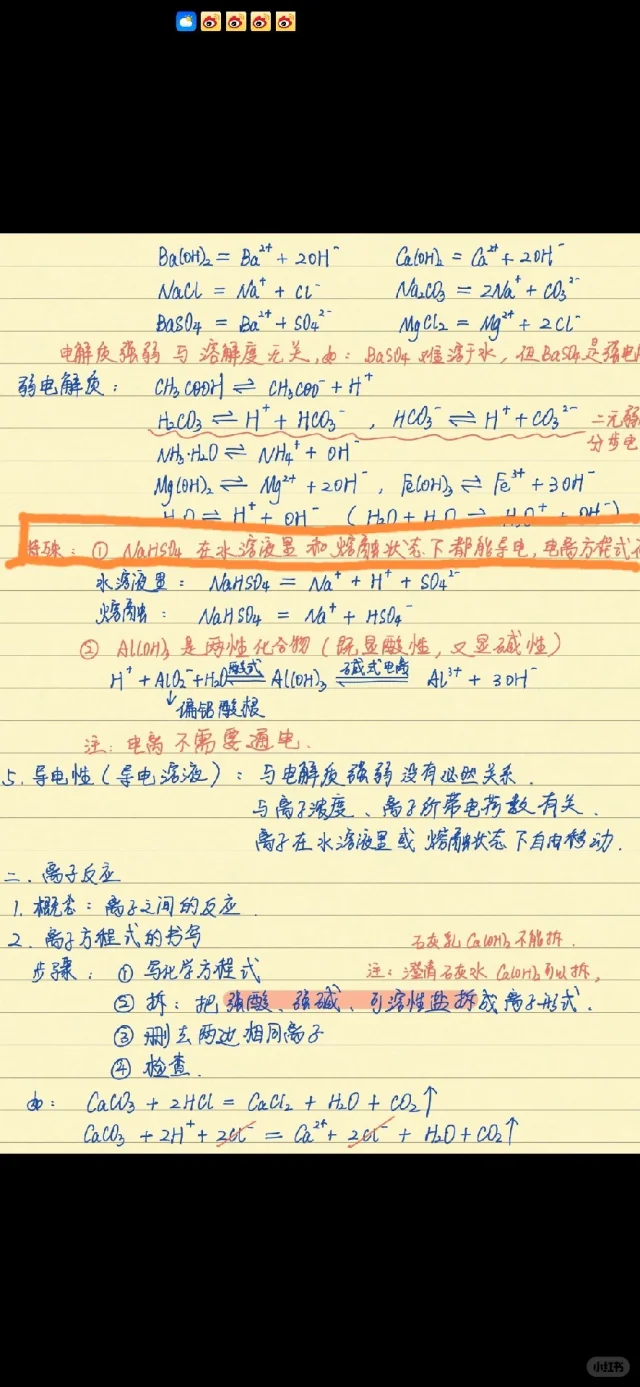 Ba(OH)₂ = Ba²⁺ + 2OH⁻ Ca(OH)₂ = Ca²⁺ + 2OH⁻
NaCl = Na⁺ + Cl⁻ Na₂CO₃ = 2Na⁺ + CO₃²⁻
BaSO₄ = Ba²⁺ + SO₄²⁻ MgCl₂ = Mg²⁺ + 2Cl⁻
电解质强弱与溶解度无关,如:BaSO₄难溶于水,但BaSO₄是强电
弱电解质: CH₃COOH ⇌ CH₃COO⁻ + H⁺
H₂CO₃ ⇌ H⁺ + HCO₃⁻ , HCO₃⁻ ⇌ H⁺ + CO₃²⁻ 二元弱
分步电
NH₃·H₂O ⇌ NH₄⁺ + OH⁻
Mg(OH)₂ ⇌ Mg²⁺ + 2OH⁻ , Fe(OH)₃ ⇌ Fe³⁺ + 3OH⁻
H₂O ⇌ H⁺ + OH⁻ (H₂O + H₂O ⇌ H₃O⁺ + OH⁻)
特殊:① NaHSO₄在水溶液里和熔融状态下都能导电,电离方程式
水溶液里: NaHSO₄ = Na⁺ + H⁺ + SO₄²⁻
熔融: NaHSO₄ = Na⁺ + HSO₄⁻
② Al(OH)₃是两性化合物(既显酸性,又显碱性)
H⁺ + AlO₂⁻ + H₂O ⇌酸式 Al(OH)₃ ⇌碱式电离 Al³⁺ + 3OH⁻
↓偏铝酸根
注:电离不需要通电.
5.导电性(导电溶液):与电解质强弱没有必然关系.
与离子浓度、离子所带电荷数有关.
离子在水溶液里或熔融状态下自由移动.
二.离子反应
1.概念:离子之间的反应.
2.离子方程式的书写 石灰乳Ca(OH)₂不能拆.
步骤:①写化学方程式 注:澄清石灰水Ca(OH)₂可以拆,
②拆:把强酸、强碱、可溶性盐拆成离子形式.
③删去两边相同离子
④检查.
如: CaCO₃ + 2HCl = CaCl₂ + H₂O + CO₂↑
CaCO₃ + 2H⁺ + 2Cl⁻ = Ca²⁺ + 2Cl⁻ + H₂O + CO₂↑
小红书